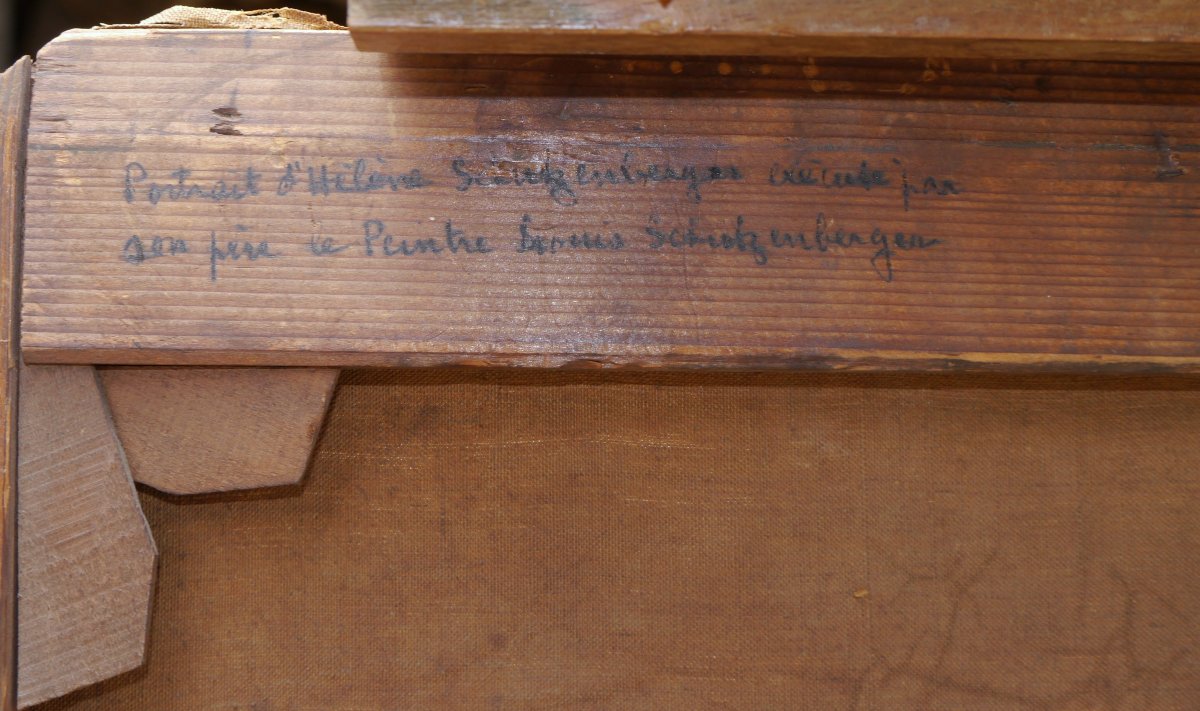 Portrait d'Hélène Schutzenberger exécuté par
son père le Peintre Louis Schutzenberger